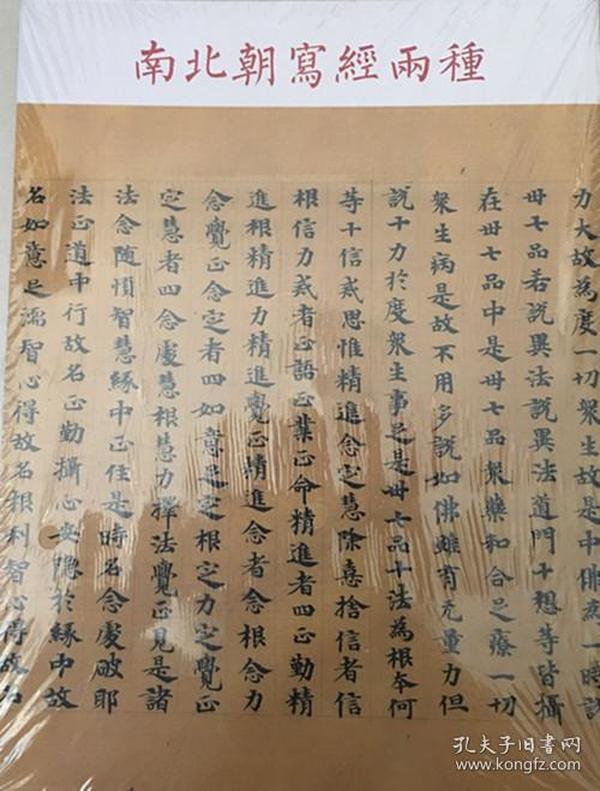 南北朝寫經兩種
力大故為度一切眾生故是中佛為一時說
卅七品若說異法說異法道門十想等皆攝
在卅七品中是卅七品眾藥和合足療一切
眾生病是故不用多說如佛雖有无量力但
說十力於度眾生事足是卅七品十法為根本何
等十信戒思惟精進念定慧除喜捨信者信
根信力戒者正語正業正命精進者四正勤精
進根精進力精進覺正精進念者念根念力
念覺正念定者四如意足定根定力定覺正
定慧者四念處慧根慧力擇法覺正見是諸
法念随順智慧緣中正住是時名念處破耶
法正道中行故名正勤攝心安隱於緣中故
名如意足濡智心得故名根利智心得故名
孔夫子旧书网
www.kongfz.com